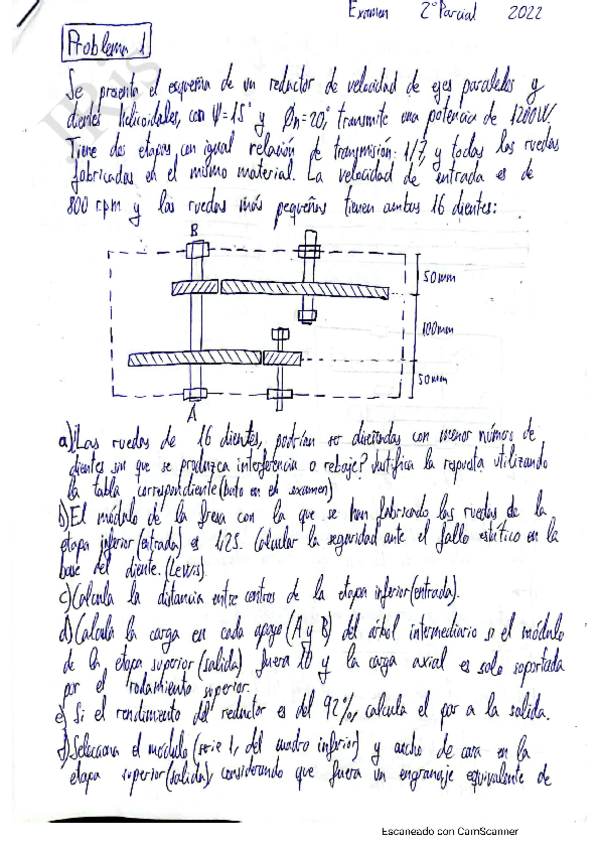 Examen 2º Parcial 2022
Problema 1
Se presenta el esquema de un reductor de velocidad de ejes paralelos y
dientes helicoidales, con ψ=15° y Øn=20°, transmite una potencia de 1200W.
Tiene dos etapas con igual relación de transmisión: 1/7, y todas las ruedas
fabricadas en el mismo material. La velocidad de entrada es de
800 rpm y las ruedas más pequeñas tienen ambas 16 dientes:
B
50mm
100mm
50mm
A
a) ¿Las ruedas de 16 dientes, podrían ser diseñadas con menor número de
dientes sin que se produzca interferencia o rebaje? Justifica la respuesta utilizando
la tabla correspondiente (dato en el examen)
b) El módulo de la fresa con la que se han fabricado las ruedas de la
etapa inferior (entrada) es 1,25. Calcular la seguridad ante el fallo estático en la
base del diente. (Lewis).
c) Calcula la distancia entre centros de la etapa inferior (entrada).
d) Calcula la carga en cada apoyo (A y B) del árbol intermediario si el módulo
de la etapa superior (salida) fuera 10 y la carga axial es solo soportada
por el rodamiento superior.
e) Si el rendimiento del reductor es del 92%, calcula el par a la salida.
f) Selecciona el módulo (serie 1, del cuadro inferior) y ancho de cara en la
etapa superior (salida), considerando que fuera un engranaje equivalente de
Escaneado con CamScanner